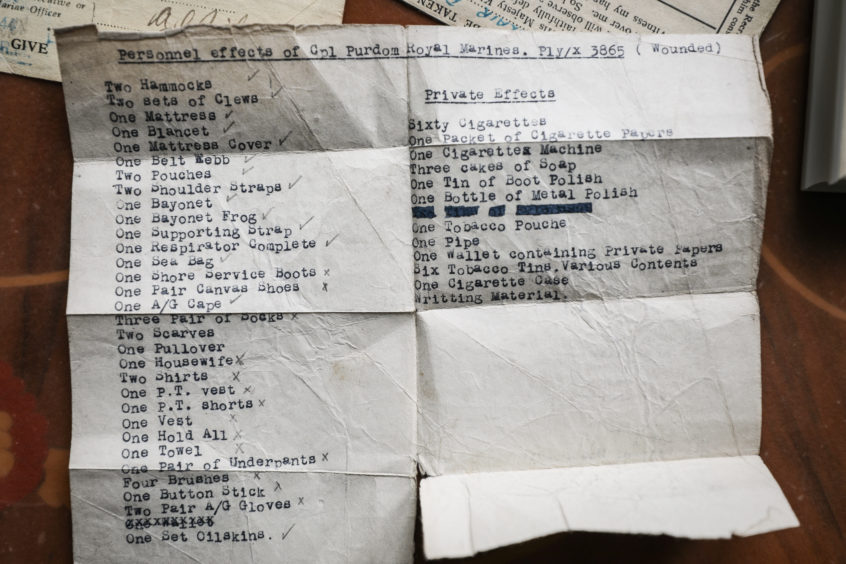 arine-Officer
GIVE
BE TAKEN
Majesty K
faithfully def
will observe o
over me.
Witness my han
the Recr
him com
Personnel effects of Cpl Purdom Royal Marines. Ply/x 3865 ( Wounded)
Two Hammocks ✓
Two sets of Clews ✓
One Mattress ✓
One Blancet ✓
One Mattress Cover ✓
One Belt Webb ✓
Two Pouches ✓
Two Shoulder Straps ✓
One Bayonet ✓
One Bayonet Frog ✓
One Supporting Strap ✓
One Respirator Complete ✓
One Sea Bag ✓
One Shore Service Boots x
One Pair Canvas Shoes x
One A/G Cape ✓
Three Pair of Socks x
Two Scarves
One Pullover
One Housewife x
Two Shirts x
One P.T. vest x
One P.T. shorts x
One Vest x
One Hold All x
One Towel x
One Pair of Underpants x
Four Brushes x
One Button Stick x
Two Pair A/G Gloves x
One Set Oilskins. ✓
Private Effects
Sixty Cigarettes
One Packet of Cigarette Papers
One Cigarettes Machine
Three cakes of Soap
One Tin of Boot Polish
One Bottle of Metal Polish
One Tobacco Pouche
One Pipe
One Wallet containing Private Papers
Six Tobacco Tins,Various Contents
One Cigarette Case
Writting Material.